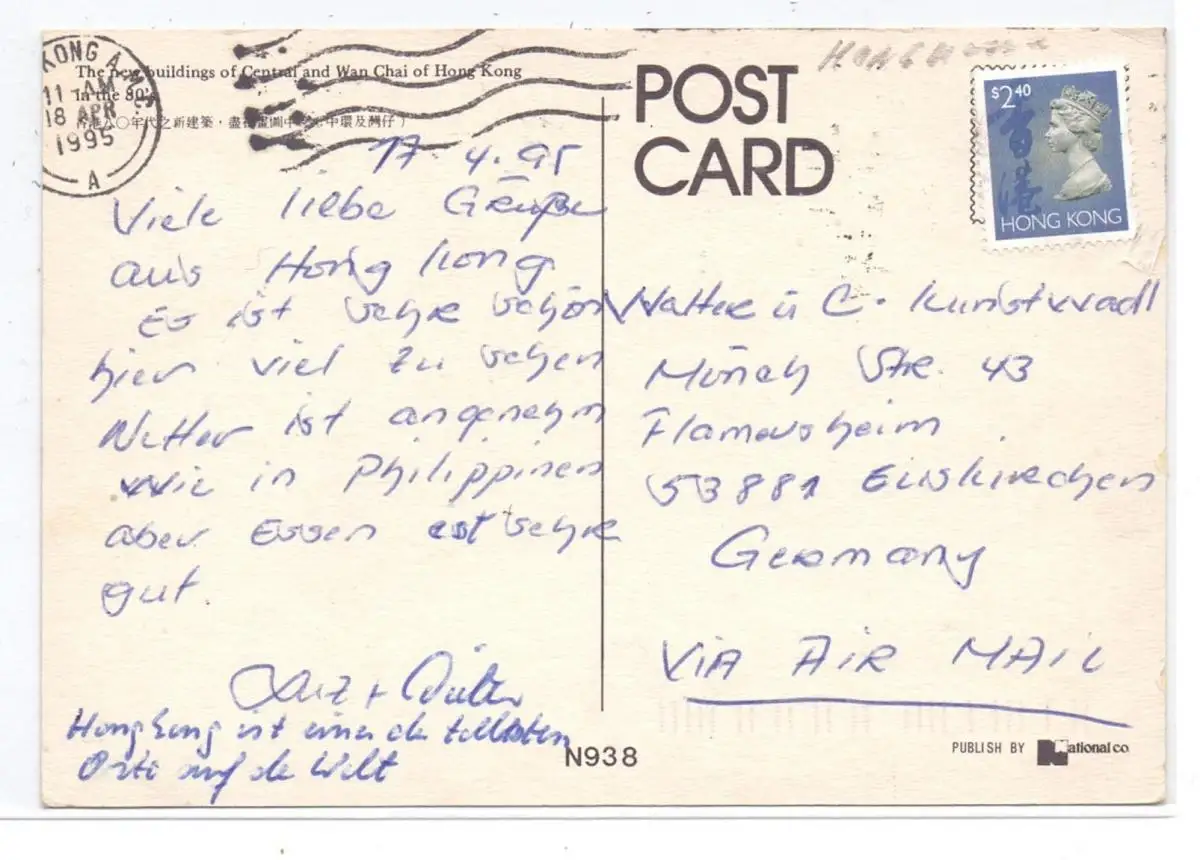 KONG A.M.
11 AM
18 APR
1995
A
The new buildings of Central and Wan Chai of Hong Kong
In the 80'
香港八〇年代之新建築，盡在畫圖中 中環及灣仔）
POST
CARD
HONG KONG
$2.40
香港
HONG KONG
17.4.95
Viele liebe Grüße
aus Hong Kong
Es ist sehr schön
hier viel zu sehen
Wetter ist angenehm
wie in Philippinen
aber Essen ist sehr
gut.
+ Dieter
Hongkong ist einer de tollsten
Orte auf de Welt
Walter u C. Kunstwadl
Münch Str. 43
Flamersheim
53881 Euskirchen
Germany
VIA AIR MAIL
N938
PUBLISH BY National co